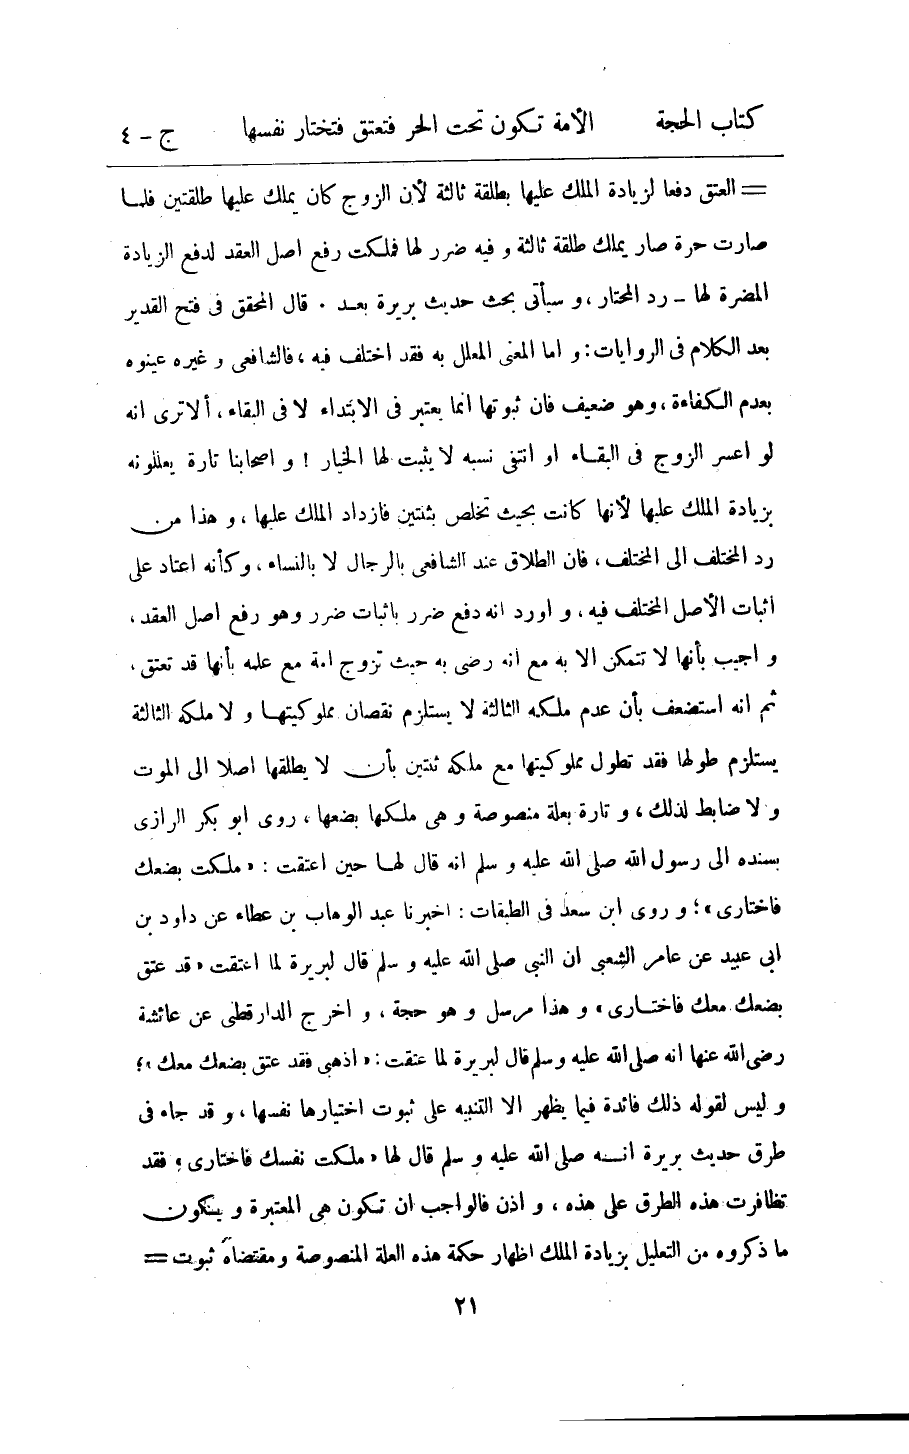 كتاب الحجة الأمة تكون تحت الحر فتعتق فتختار نفسها ج - ٤
= العتق دفعا لزيادة الملك عليها بطلقة ثالثة لأن الزوج كان يملك عليها طلقتين فلما
صارت حرة صار يملك طلقة ثالثة و فيه ضرر لها فملكت رفع اصل العقد لدفع الزيادة
المضرة لها - رد المحتار ، و سيأتى بحث حديث بريرة بعد . قال المحقق فى فتح القدير
بعد الكلام فى الروايات : و اما المعنى المعلل به فقد اختلف فيه ، فالشافعى و غيره عينوه
بعدم الكفاءة ، وهو ضعيف فان ثبوتها انما يعتبر فى الابتداء لا فى البقاء ، ألا ترى انه
لو اعسر الزوج فى البقاء او انتفى نسبه لا يثبت لها الخيار ! و اصحابنا تارة يعللونه
بزيادة الملك عليها لأنها كانت بحيث تخلص بثنتين فازداد الملك عليها ، و هذا من
رد المختلف الى المختلف ، فان الطلاق عند الشافعى بالرجال لا بالنساء ، وكأنه اعتاد على
اثبات الأصل المختلف فيه ، و اورد انه دفع ضرر باثبات ضرر وهو رفع اصل العقد ،
و اجيب بأنها لا تتمكن الا به مع انه رضى به حيث تزوج امة مع علمه بأنها قد تعتق ،
ثم انه استضعف بأن عدم ملكه الثالثة لا يستلزم نقصان مملوكيتها و لا ملكه الثالثة
يستلزم طولها فقد تطول مملوكيتها مع ملكه ثنتين بأن لا يطلقها اصلا الى الموت
و لا ضابط لذلك ، و تارة بعلة منصوصة و هى ملكها بضعها ، روى ابو بكر الرازى
بسنده الى رسول الله صلى الله عليه و سلم انه قال لها حين اعتقت : « ملكت بضعك
فاختارى » ؛ و روى ابن سعد فى الطبقات : اخبرنا عبد الوهاب بن عطاء عن داود بن
ابى عبيد عن عامر الشعبى ان النبى صلى الله عليه و سلم قال لبريرة لما اعتقت « قد عتق
بضعك معك فاختارى » و هذا مرسل و هو حجة ، و اخرج الدارقطنى عن عائشة
رضى الله عنها انه صلى الله عليه وسلم قال لبريرة لما عتقت : « اذهبى فقد عتق بضعك معك » ؛
و ليس لقوله ذلك فائدة فيما يظهر الا التنبيه على ثبوت اختيارها نفسها ، و قد جاء فى
طرق حديث بريرة انه صلى الله عليه و سلم قال لها « ملكت نفسك فاختارى » فقد
تظافرت هذه الطرق على هذه ، و اذن فالواجب ان تكون هى المعتبرة و يكون
ما ذكروه من التعليل بزيادة الملك اظهار حكمة هذه العلة المنصوصة و مقتضاه ثبوت =
٢١